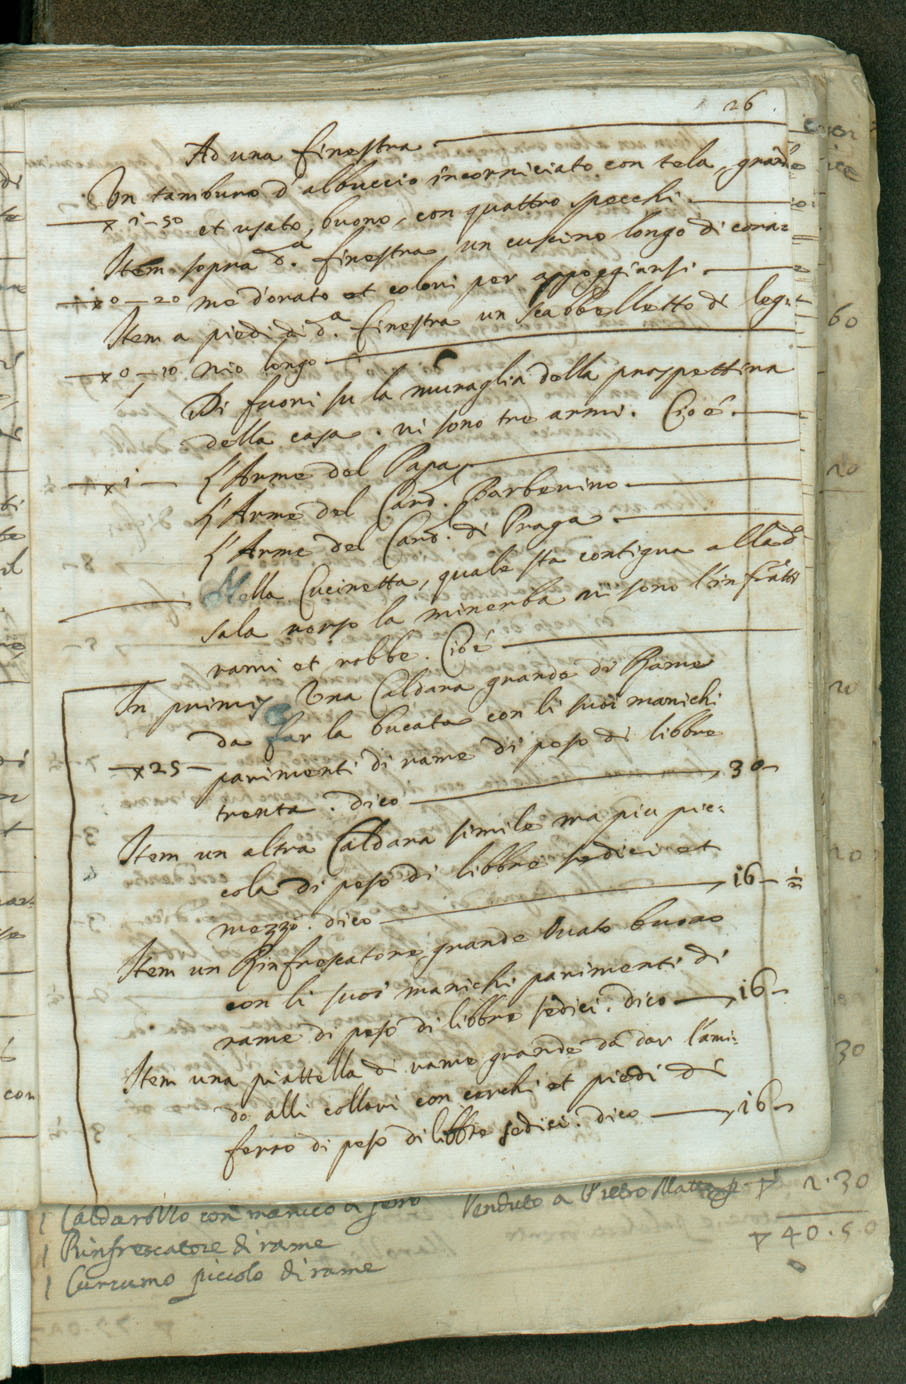 26.
Ad una finestra
Un tamburo d'albuccio incorniciato con tela, grande
x 1-50 et usato, buono, con quattro specchi.
Item sopra d.a finestra un cuscino longo di cora=
x 0-20 me dorato et colori per appoggiarsi.
Item a piedi di d.a finestra un scabbelletto di leg=
x 0-10 nio longo
Di fuori su la muraglia della prospettiva
della casa. vi sono tre armi. Cioè.
x 1 L'Arme del Papa
L'Arme del Card. Barberino
L'Arme del Card. di Praga
Nella Cucinetta, quale sta contigua alla d.
sala verso la minerba vi sono l'infratti
rami et robbe. Cioè
In primis Una Caldara grande di Rame
da far la bucata con li suoi manichi
x 25 parimenti di rame di peso di libbre
trenta. dico 30
Item un altra Caldara simile ma più pic=
cola di peso di libbre sedici et
mezzo. dico 16 ½
Item un Rinfrescatore grande usato buono
con li suoi manichi parimenti di
rame di peso di libbre sedici. dico 16
Item una piattella di rame grande da dar l'ami=
do alli collari con cerchi et piedi di
ferro di peso di libbre sedici. dico 16
60
20
20
20
30
1 Caldarozzo con manico di ferro Venduto a Pietro 2.30
1 Rinfrescatore di rame 40.50
1 Curcumo piccolo di rame